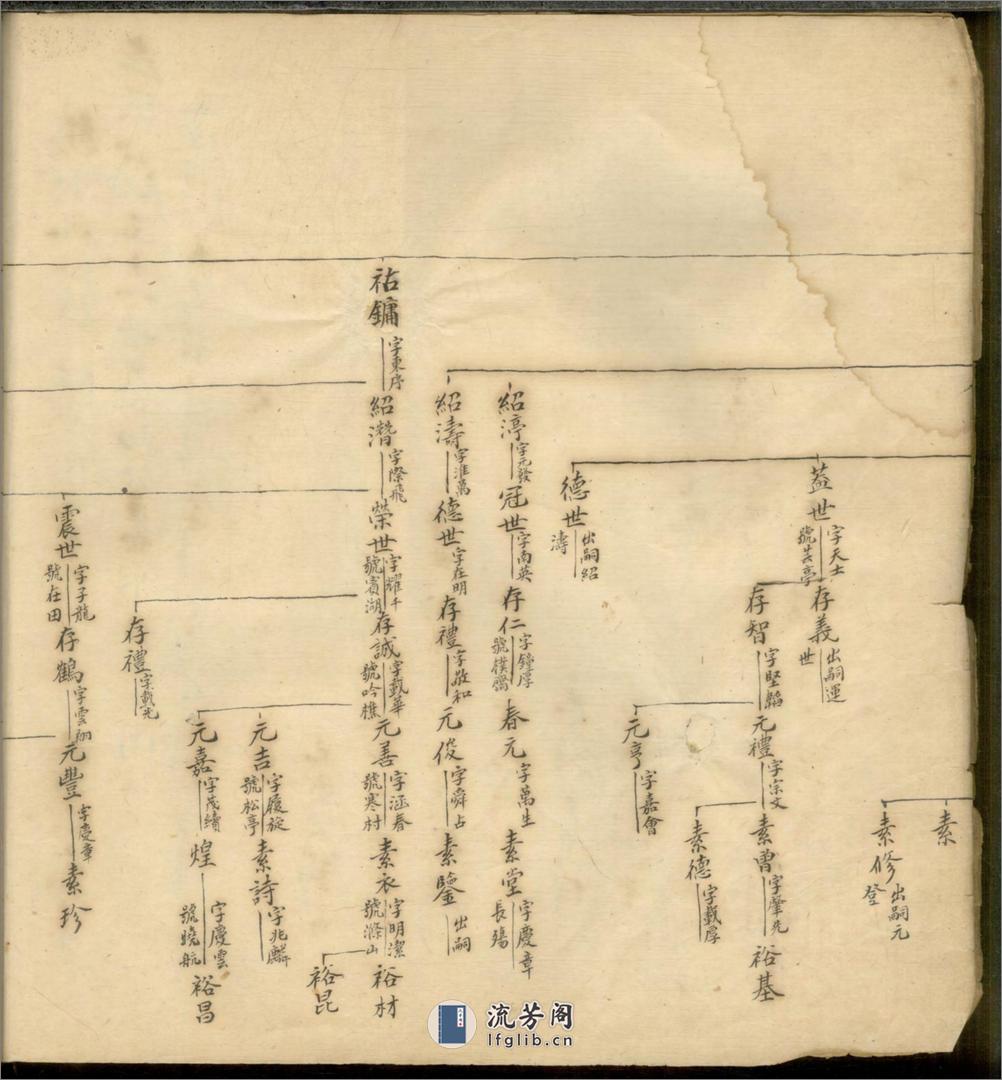 素
素修 出嗣元登
蓋世 字天士 號芸亭
存義 出嗣運世
存智 字堅韜
元禮 字宗文
素曾 字肇先
裕基
素德 字載厚
元亨 字嘉會
德世 出嗣紹濤
紹渟 字元發
冠世 字南英
存仁 字鐘厚 號樸齋
春元 字萬生
素堂 字慶章 長殤
紹濤 字淮萬
德世 字在明
存禮 字敬和
元俊 字舜占
素鑒 出嗣
祐鏞 字東序
紹濳 字際飛
榮世 字耀千 號賓湖
存誠 字載華 號吟樵
元善 字涵春 號寒村
素衣 字明潔 號滌山
裕材
裕昆
元吉 字履旋 號松亭
素詩 字兆麟
元嘉 字茂績
煌 字慶雲 號曉航
裕昌
存禮 字載先
震世 字子龍 號在田
存鶴 字雲翔
元豐 字慶章
素珍
流芳阁
lfglib.cn